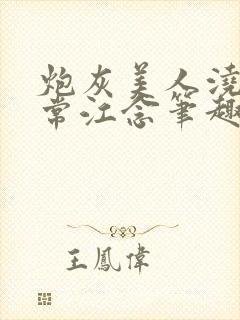 炮灰美人澆
常江念筆趣
王鳳偉